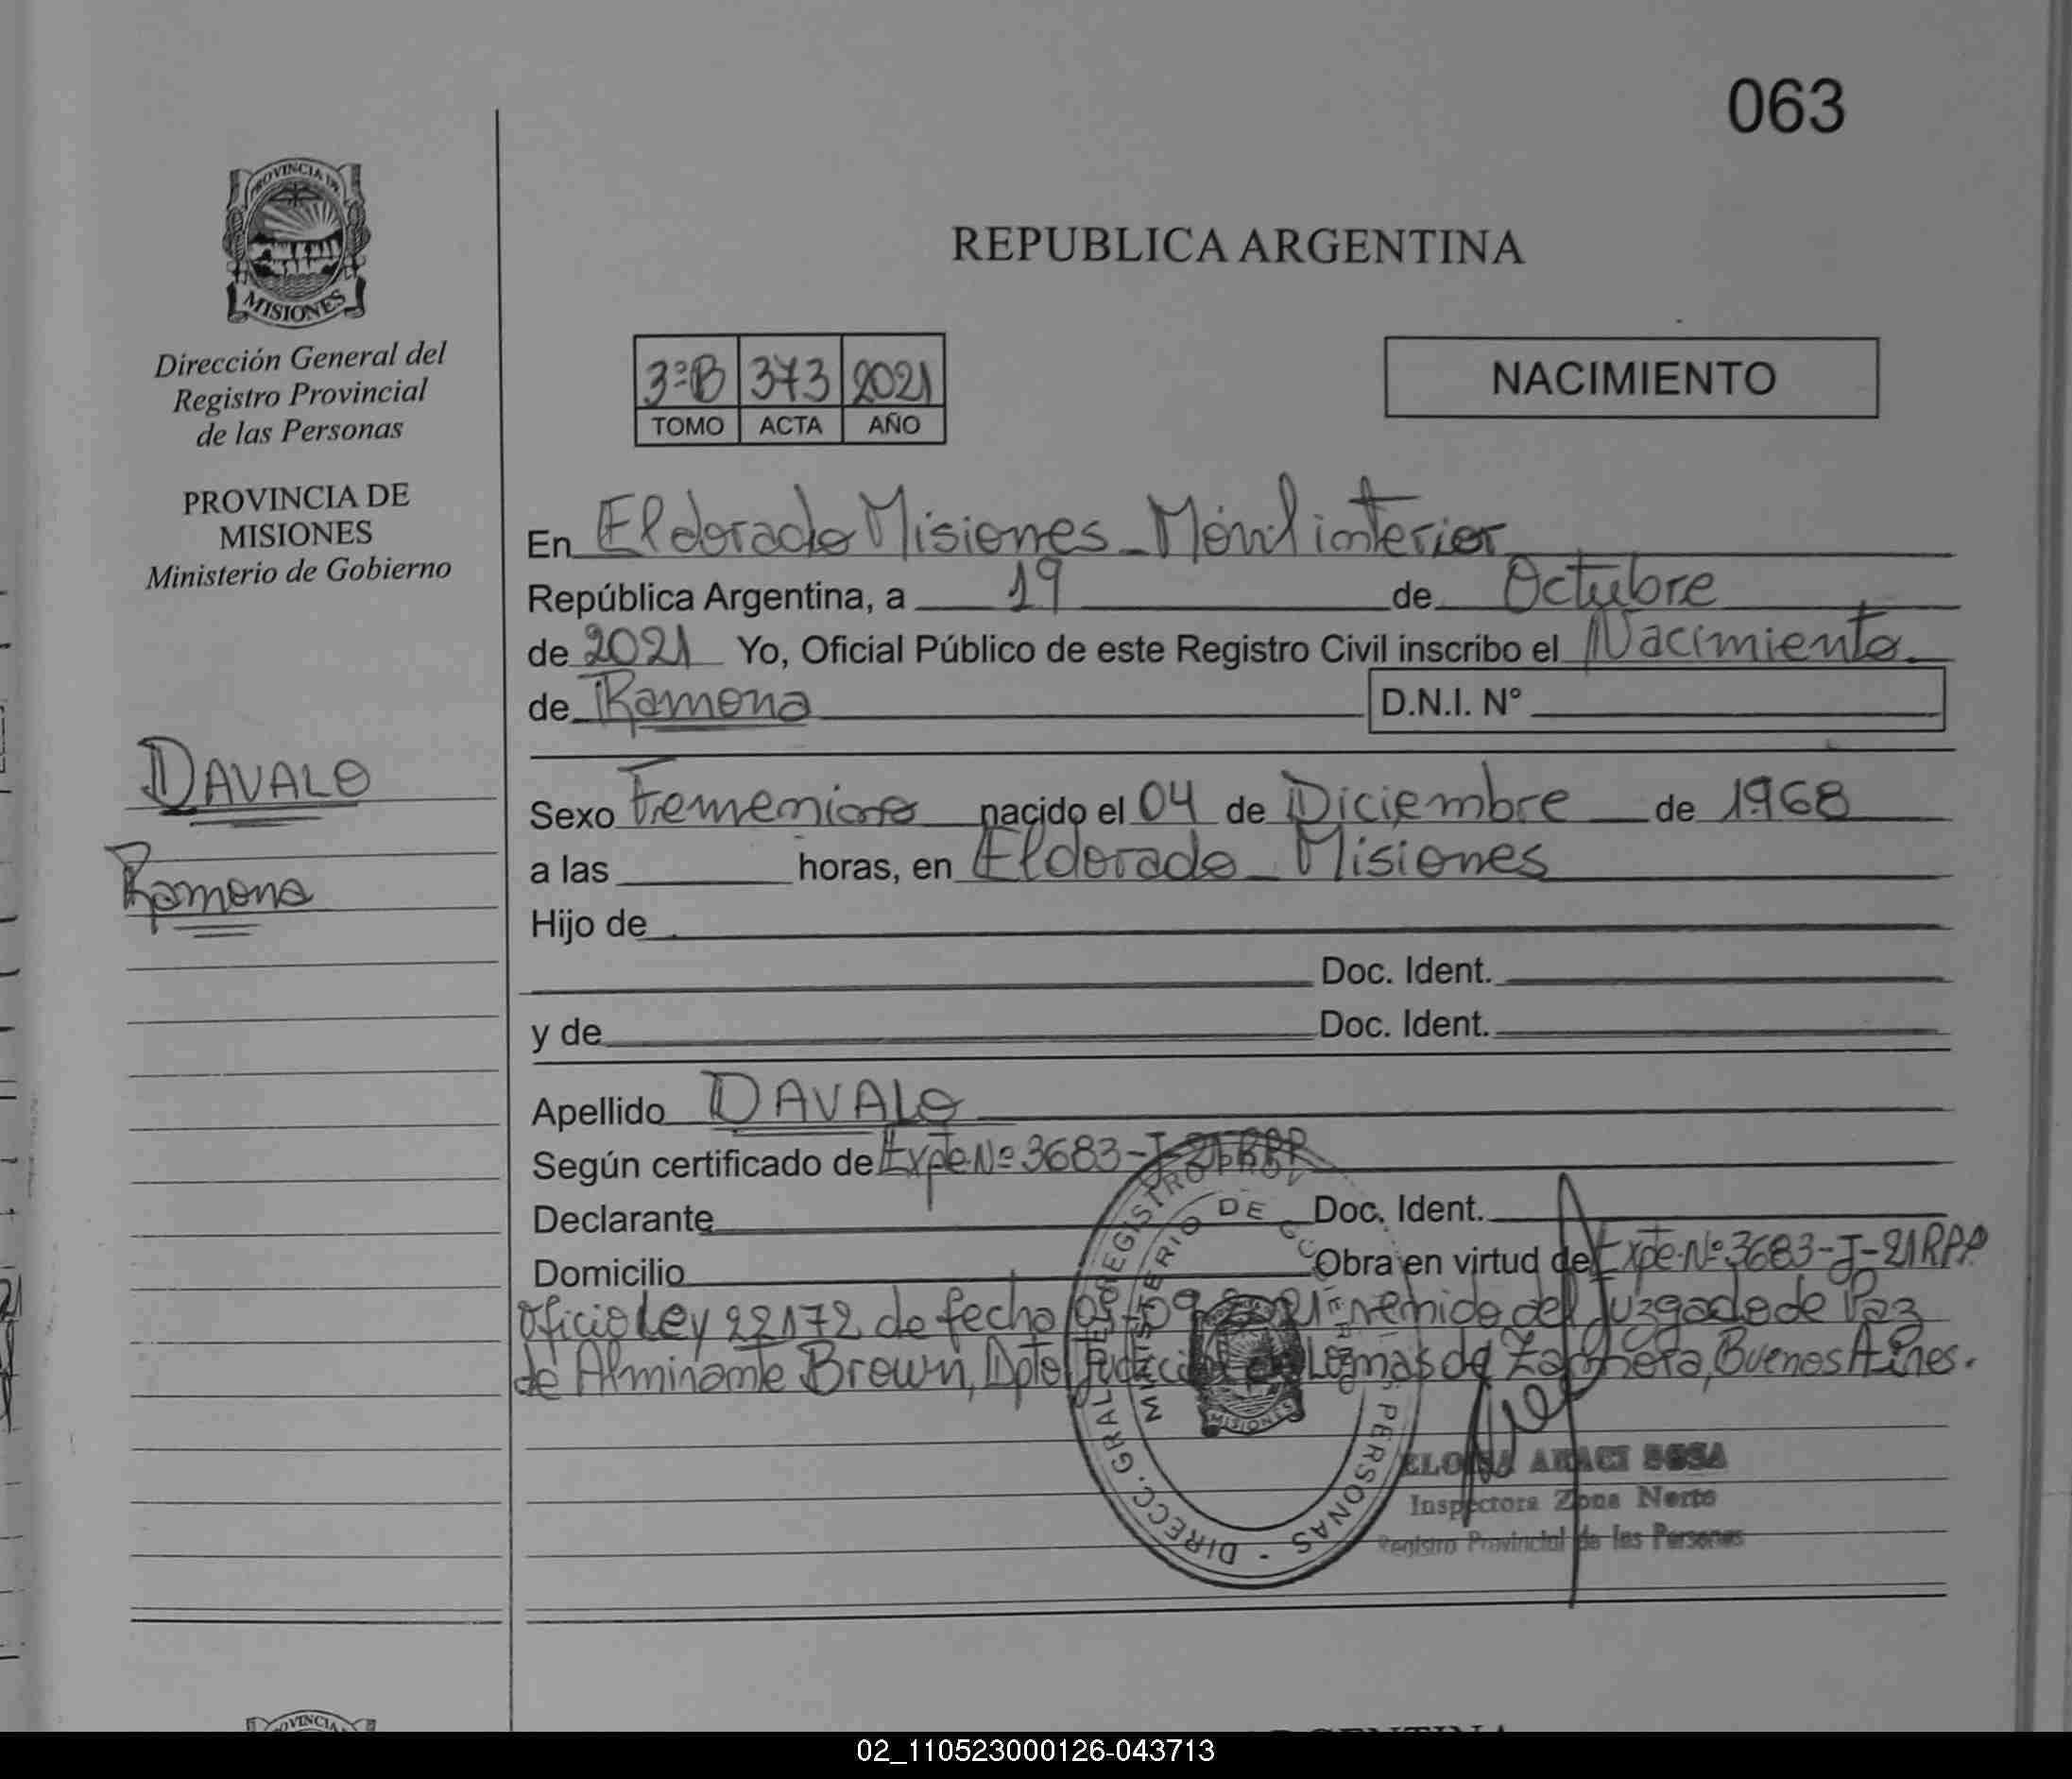 063
PROVINCIA DE
MISIONES
Dirección General del
Registro Provincial
de las Personas
PROVINCIA DE
MISIONES
Ministerio de Gobierno
DAVALO
Ramona
REPUBLICA ARGENTINA
3ºB 373 2021
TOMO ACTA AÑO
NACIMIENTO
En Eldorado Misiones - Móvil interior
República Argentina, a 19 de Octubre
de 2021 Yo, Oficial Público de este Registro Civil inscribo el Nacimiento
de Ramona D.N.I. Nº
Sexo Femenino nacido el 04 de Diciembre de 1968
a las horas, en Eldorado - Misiones
Hijo de
Doc. Ident.
y de Doc. Ident.
Apellido DAVALO
Según certificado de Expte. Nº 3683-J-21RPP
Declarante Doc. Ident.
Domicilio Obra en virtud de Expte. Nº 3683-J-21RPP
Oficio Ley 22172 de fecha 2021 remido del Juzgado de Paz
de Alminante Brown, Dpto Judicial de Lomas de Zamora, Buenos Aires.
DIRECC. GRAL DEL REGISTRO PROV PERSONAS
MINISTERIO DE
MISIONES
ELOISA ARACI SOSA
Inspectora Zona Norte
Registro Provincial de las Personas
PROVINCIA
02_110523000126-043713